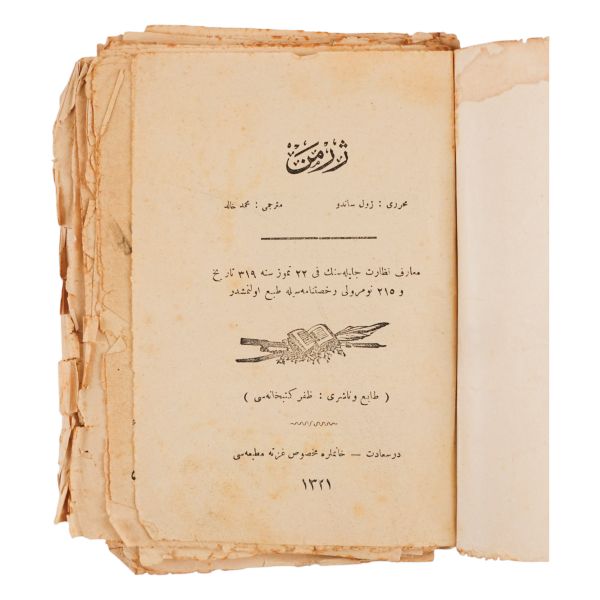 ژرمن
محرری : ژول ساندو مترجمی : محمد خالد
معارف نظارت جلیله‌سنك فی ٢٢ تموز سنه ٣١٩ تاریخ
و ٢١٥ نومرولی رخصتنامه‌سیله طبع اولنمشدر
( طابع و ناشری : ظفر كتبخانه‌سی )
درسعادت — خانملره مخصوص غزته مطبعه‌سی
١٣٢١